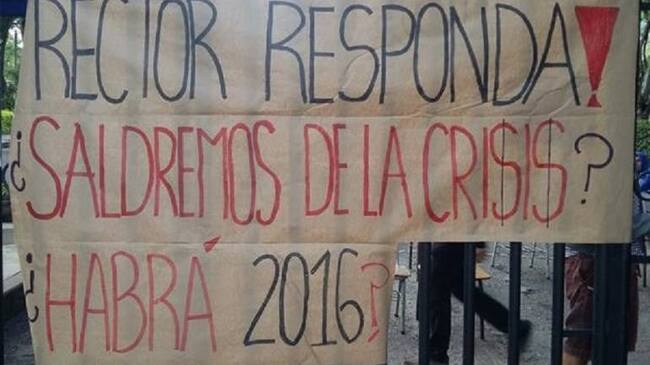 RECTOR RESPONDA!
¿SALDREMOS DE LA CRI$I$?
¿HABRÁ 2016?